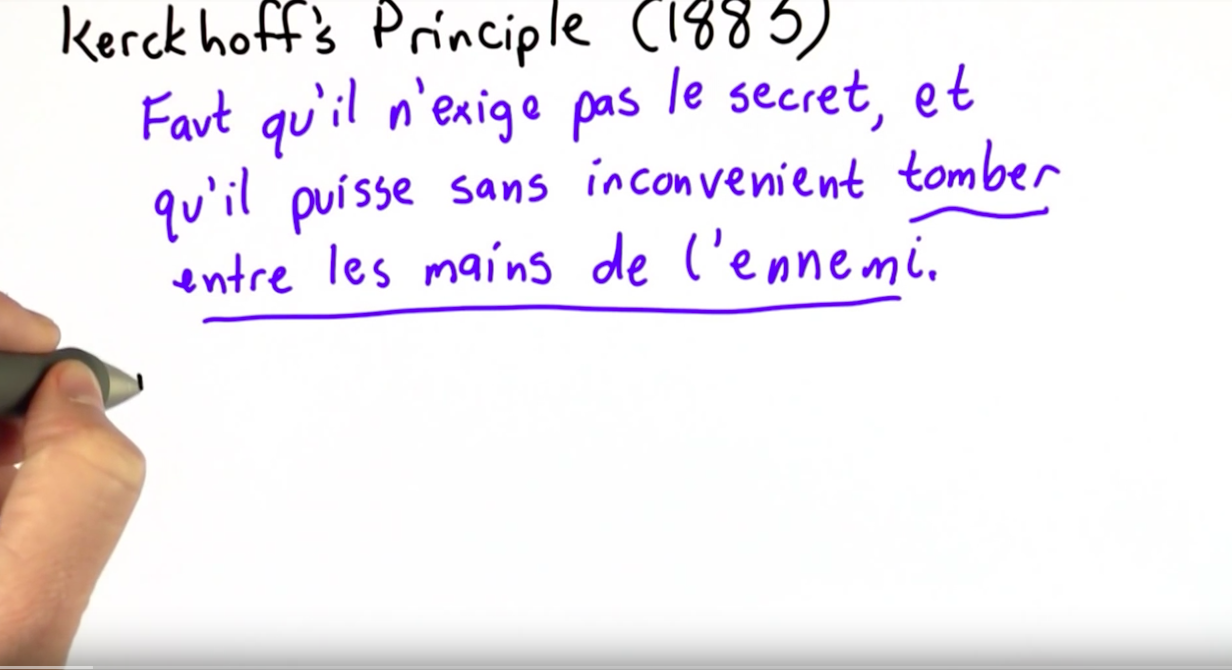 Kerckhoff's Principle (1883)
Faut qu'il n'exige pas le secret, et
qu'il puisse sans inconvenient tomber
entre les mains de l'ennemi.